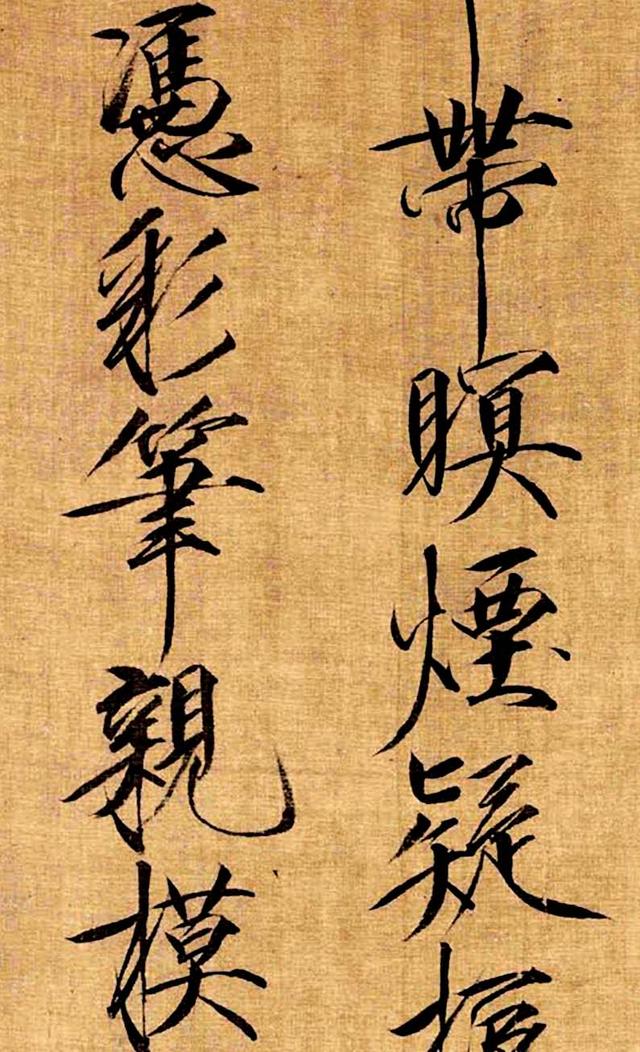 帶瞑煙疑
憑彩筆親模